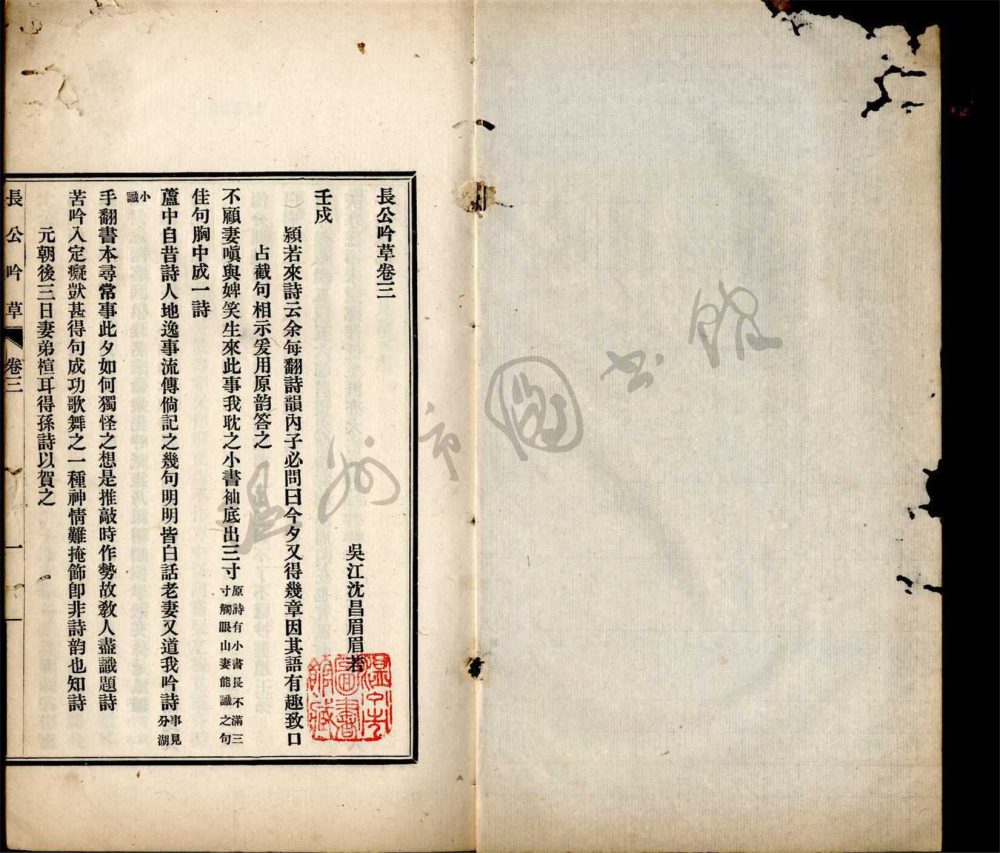 長公吟草卷三
吳江沈昌眉眉若
壬戌
潁若來詩云余每翻詩韻內子必問曰今夕又得幾章因其語有趣致口
占截句相示爰用原韵答之
不顧妻嗔與婢笑生來此事我耽之小書袖底出三寸原詩有小書長不滿三
寸觸眼山妻能識之句
佳句胸中成一詩
蘆中自昔詩人地逸事流傳倘記之幾句明明皆白話老妻又道我吟詩事見
分湖
小
識
手翻書本尋常事此夕如何獨怪之想是推敲時作勢故敎人盡識題詩
苦吟入定癡獃甚得句成功歌舞之一種神情難掩飾卽非詩韵也知詩
元朝後三日妻弟楦耳得孫詩以賀之
長公吟草
卷三
一
溫州市圖書館
溫州市
圖書
館藏